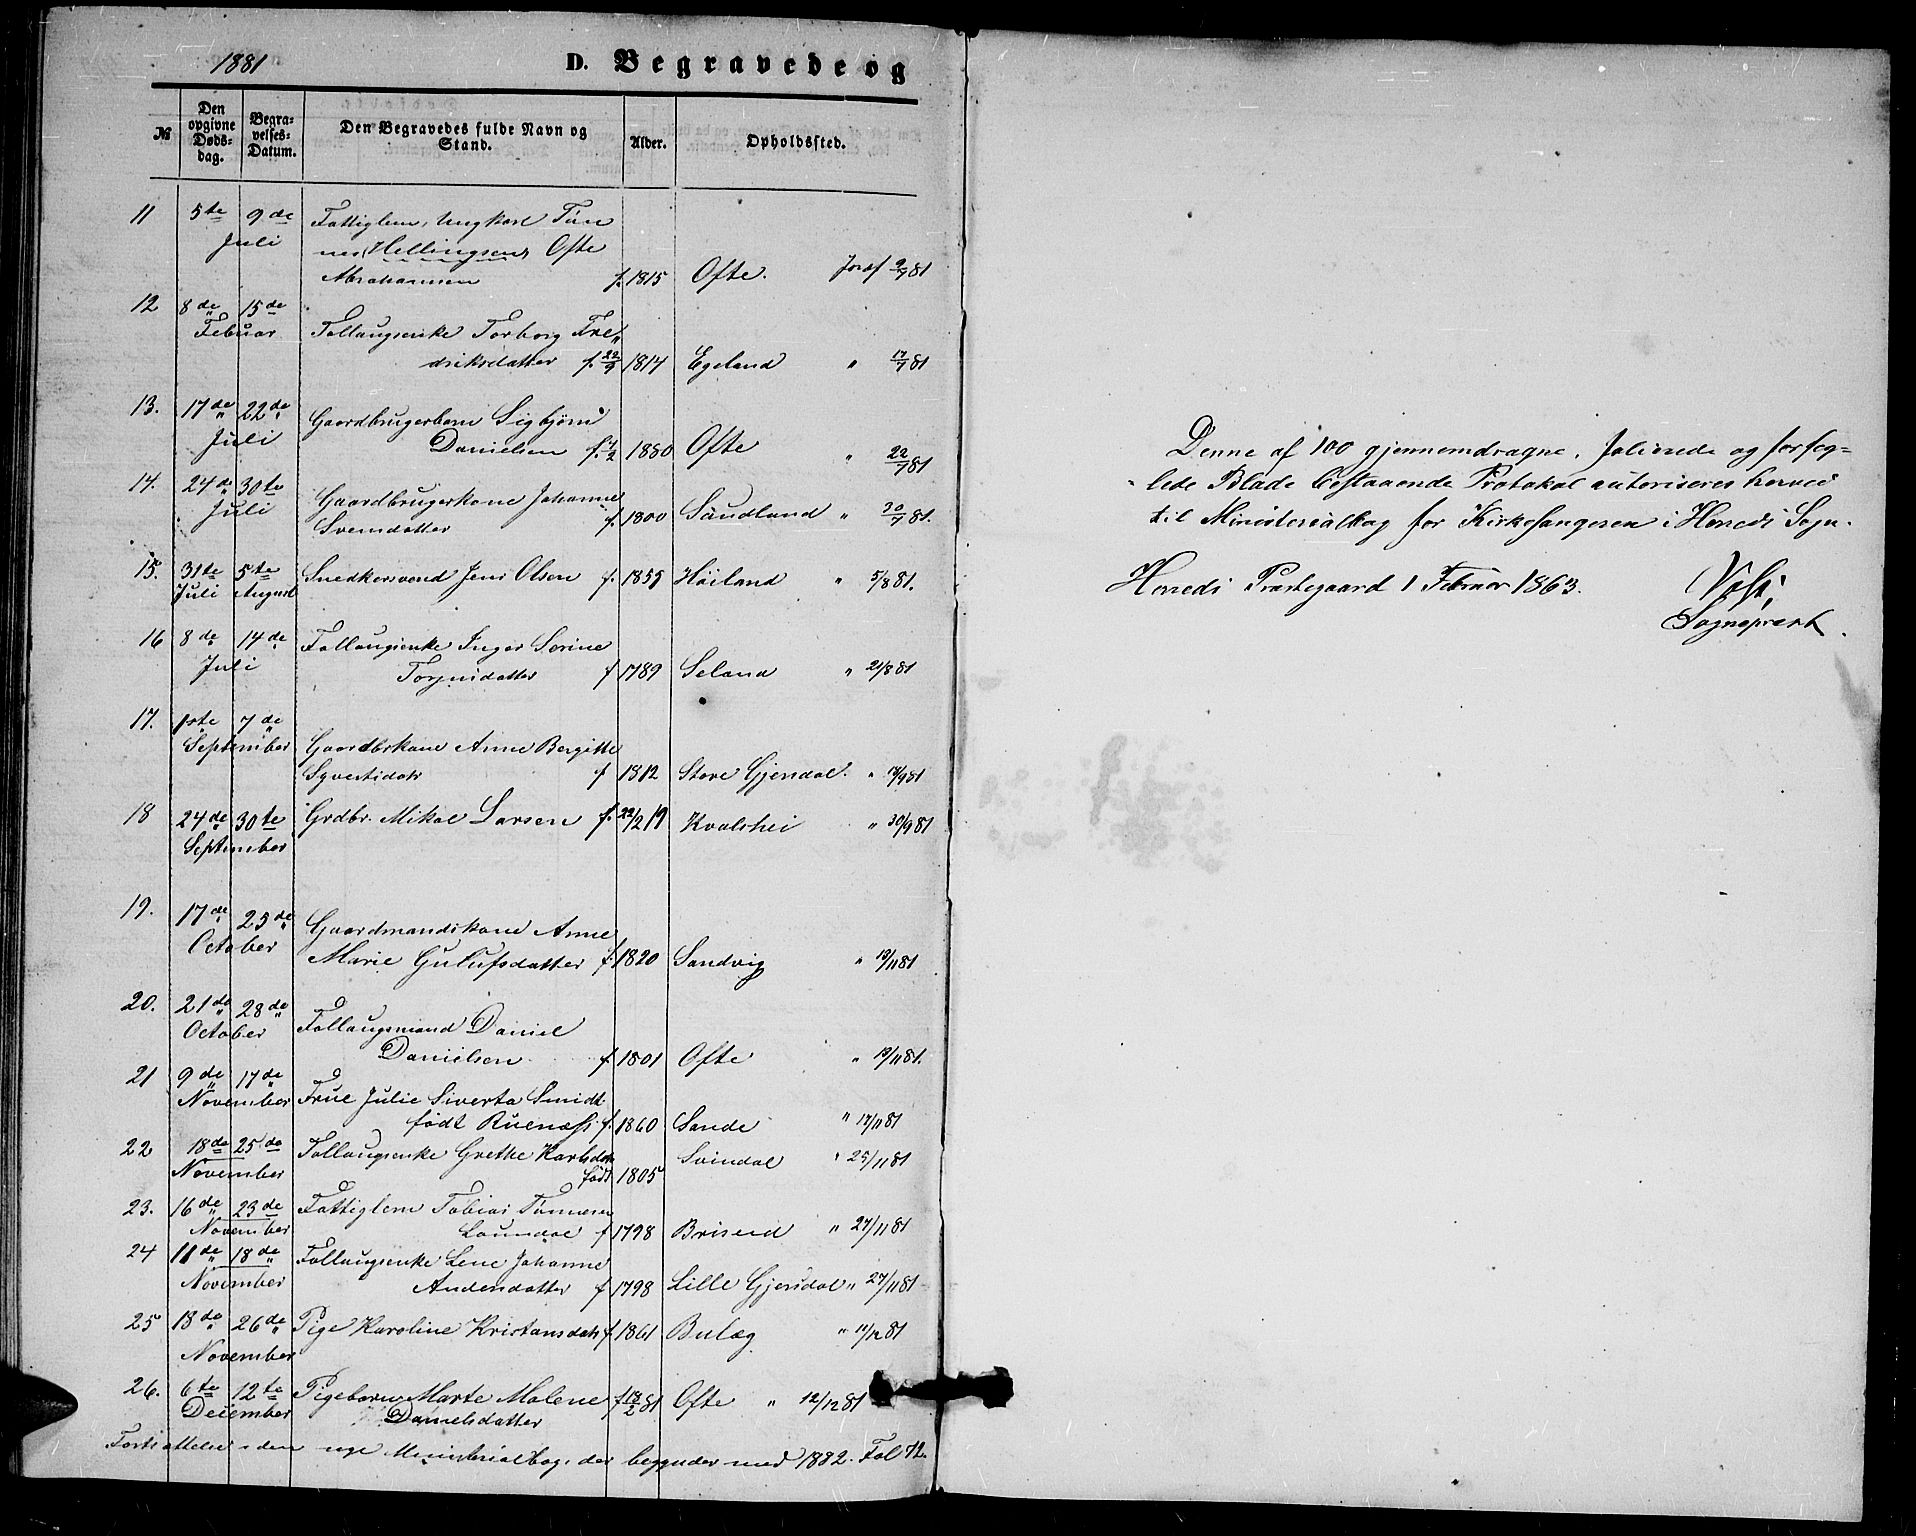 1881
D. Begravede og
№
Den opgivne Døds-dag.
Begra-velses-Datum.
Den Begravedes fulde Navn og Stand.
Alder.
Opholdssted.
11 5te 9de Fattiglem, Ungkarl Tøn
Juli nes (Hellingsen) Ofte
Abrahamsen f. 1815 Ofte. 9/7 81
12 8de 15de
Februar Follaugsenke Torborg Fre„
driksdatter f. 22/9 1814 Egeland " 17/7 81
13. 17de 22de Gaardbrugerbarn Sigbjørn
Juli Danielsen f. 1/2 1880 Ofte " 22/7 81
14. 24de 30te Gaardbrugerkone Johanne
Juli Svensdatter f. 1800 Sandland " 30/7 81.
15. 31te 5te Snedkersvend Jens Olsen f. 1855 Høiland " 5/8 81.
Juli August
16 8de 14de Follaugsenke Inger Serine
Juli Torjusdatter f 1789 Seland " 21/8 81
17. 1ste 7de
September Gaardbrkone Anne Bergitte
Syvertsdatr f 1812 Store Gjersdal. " 18/9 81
18 24de 30te Grdbr. Mikal Larsen f. 22/2 19 Kvalshei " 30/9 81
September
19. 17de 25de Gaardmandskone Anne
October Marie Gulufsdatter f. 1820 Sandvig " 19/11 81
20. 21de 28de Follaugsmand Daniel
October Danielsen f. 1801 Ofte " 19/11 81.
21 9de 17de Frue Julie Siverta Smidt
November født Buenæss f. 1860 Sande " 17/11 81
22 18de 25de Follaugsenke Grethe Karlsdatr Svindal " 25/11 81
November født 1805
23. 16de 23de Fattiglem Tobias Tønnesen
November Laundal f 1798 Briseid " 27/11 81
24 11de 18de Follaugsenke Lene Johanne
November Andersdatter f 1798 Lille Gjersdal " 27/11 81
25 18de 26de Pige Karoline Kristansdatr f. 1861 Bulæg " 11/12 81
November
26. 6te 12te Pigebarn Marte Malene f 18/2 81 Ofte " 12/12 81
December Danielsdatter
Fortsættelse i den nye Ministerialbog, der begynder med 1882. Fol 72.
Denne af 100 gjennemdragne, folierede og forseg=
lede Blade bestaaende Protokol autoriseres herved
til Ministerialbog for Kirkesangeren i Hereds Sogn.
Hereds Præstegaard 1 Februar 1863.
Sognepræst.